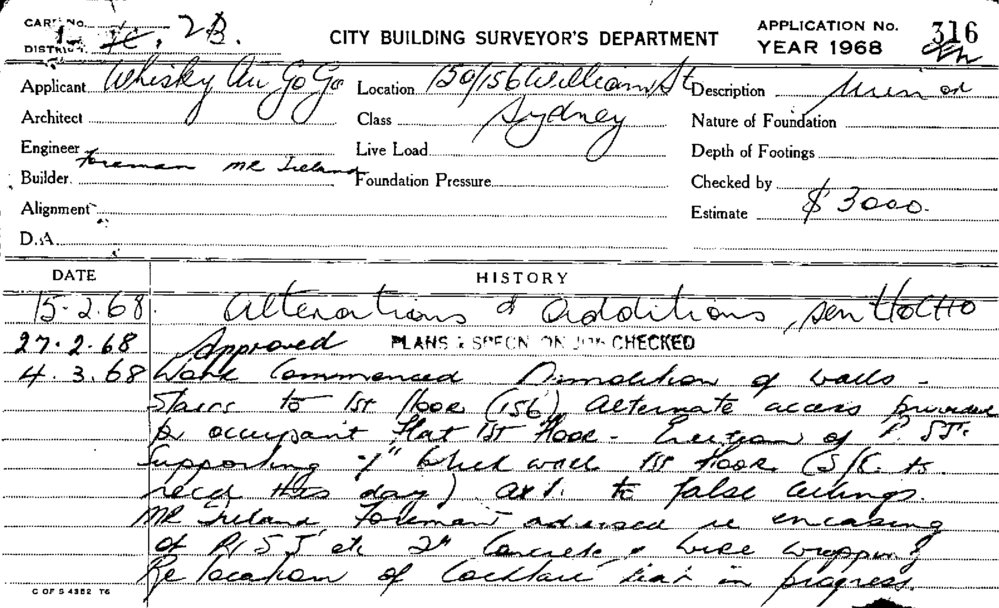 CARD No.
DISTRICT 2B.
CITY BUILDING SURVEYOR'S DEPARTMENT
APPLICATION No. 316
YEAR 1968
Applicant Whisky Au Go Go
Location 150/156 William St
Sydney
Description Minor
Architect
Class
Nature of Foundation
Engineer
Live Load
Depth of Footings
Foreman Mr Ireland
Builder
Foundation Pressure
Checked by
Alignment
Estimate $ 3000.
D.A.
DATE HISTORY
15.2.68. Alterations & additions,
27.2.68 Approved PLANS & SPECN ON JOB CHECKED
4.3.68 Work Commenced Demolition of walls -
Stairs to 1st floor (156) Alternate access provided
to occupant flat 1st floor - Erection of
supporting brick wall 1st floor
recd this day) to false ceilings.
Mr Ireland, Foreman advised re encasing
of etc 2" Concrete & wire wrapping
Re location of Cocktail bar in progress.
C OF S 4352 T6